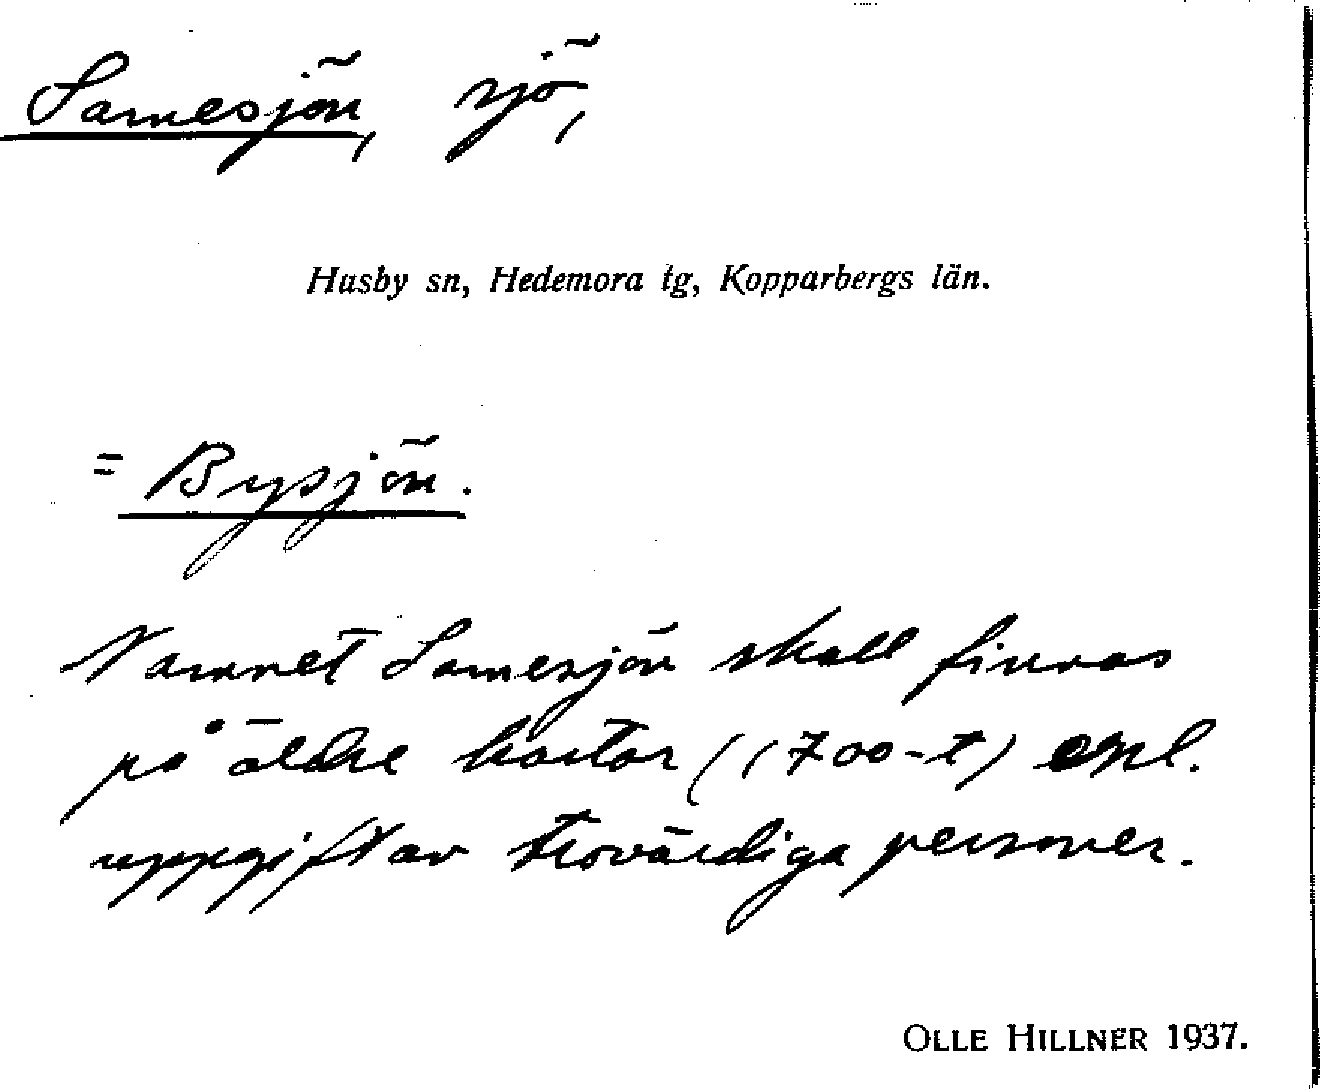 Samesjön, sjö,
Husby sn, Hedemora tg, Kopparbergs län.
= Bysjön.
Namnet Samesjön skall finnas
på äldre kartor (1700-t) enl.
uppgift av trovärdiga personer.
OLLE HILLNER 1937.